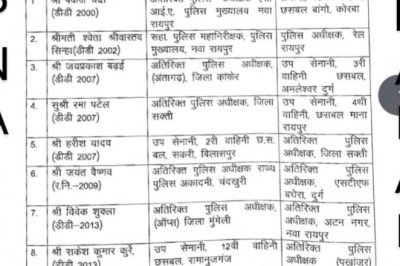 (डीडी 2000) आई.ए. पुलिस मुख्यालय नवा छसबल बांगो, कोरबा
रायपुर
2. श्रीमती श्वेता श्रीवास्तव सहा. पुलिस महानिरीक्षक, पुलिस पुलिस अधीक्षक, रेल
सिन्हा(डीडी 2002) मुख्यालय, नवा रायपुर रायपुर
3. श्री जयप्रकाश बढ़ई अतिरिक्त पुलिस अधीक्षक, उप सेनानी, 3री
(डीडी 2007) (अंतागढ़), जिला कांकेर वाहिनी छसबल,
अमलेश्वर दुर्ग
4. सुश्री रमा पटेल अतिरिक्त पुलिस अधीक्षक, जिला उप सेनानी, 4थी
(डीडी 2007) सक्ती वाहिनी, छसबल माना
रायपुर
5. श्री हरीश यादव उप सेनानी, 2री वाहिनी छ.स. अतिरिक्त पुलिस
(डीडी 2007) बल, सकरी, बिलासपुर अधीक्षक, जिला सक्ती
6. श्री जयंत वैष्णव अतिरिक्त पुलिस अधीक्षक राज्य अतिरिक्त पुलिस
(र.नि.-2009) पुलिस अकादमी, चंदखुरी अधीक्षक, एसटीएफ
बघेरा, दुर्ग
7. श्री विवेक शुक्ला अतिरिक्त पुलिस अधीक्षक, अतिरिक्त पुलिस
(डीडी-2013) (ऑप्स) जिला मुंगेली अधीक्षक, अटल नगर,
नवा रायपुर
8. श्री राकेश कुमार कुर्रे, उप सेनानी, 12वीं वाहिनी अतिरिक्त पुलिस
(डीडी 2013) छसबल, रामानुजगंज अधीक्षक (पखांजूर)